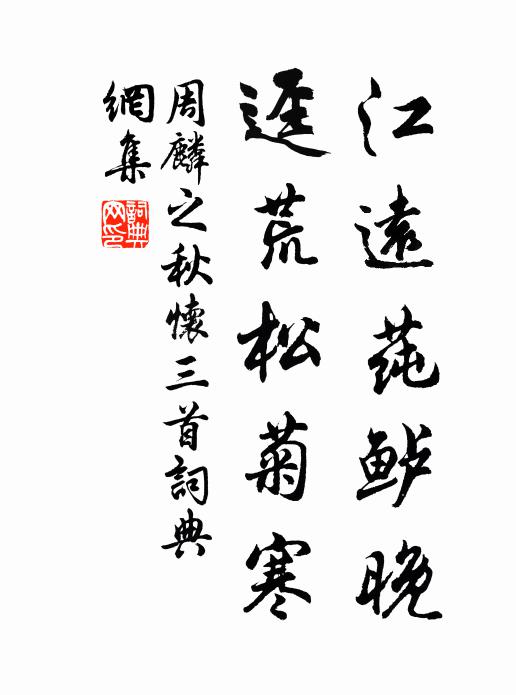 江遠莼鲈晚
逕荒松菊寒
周麟之秋懷三首詞典
網集
詞典
网印